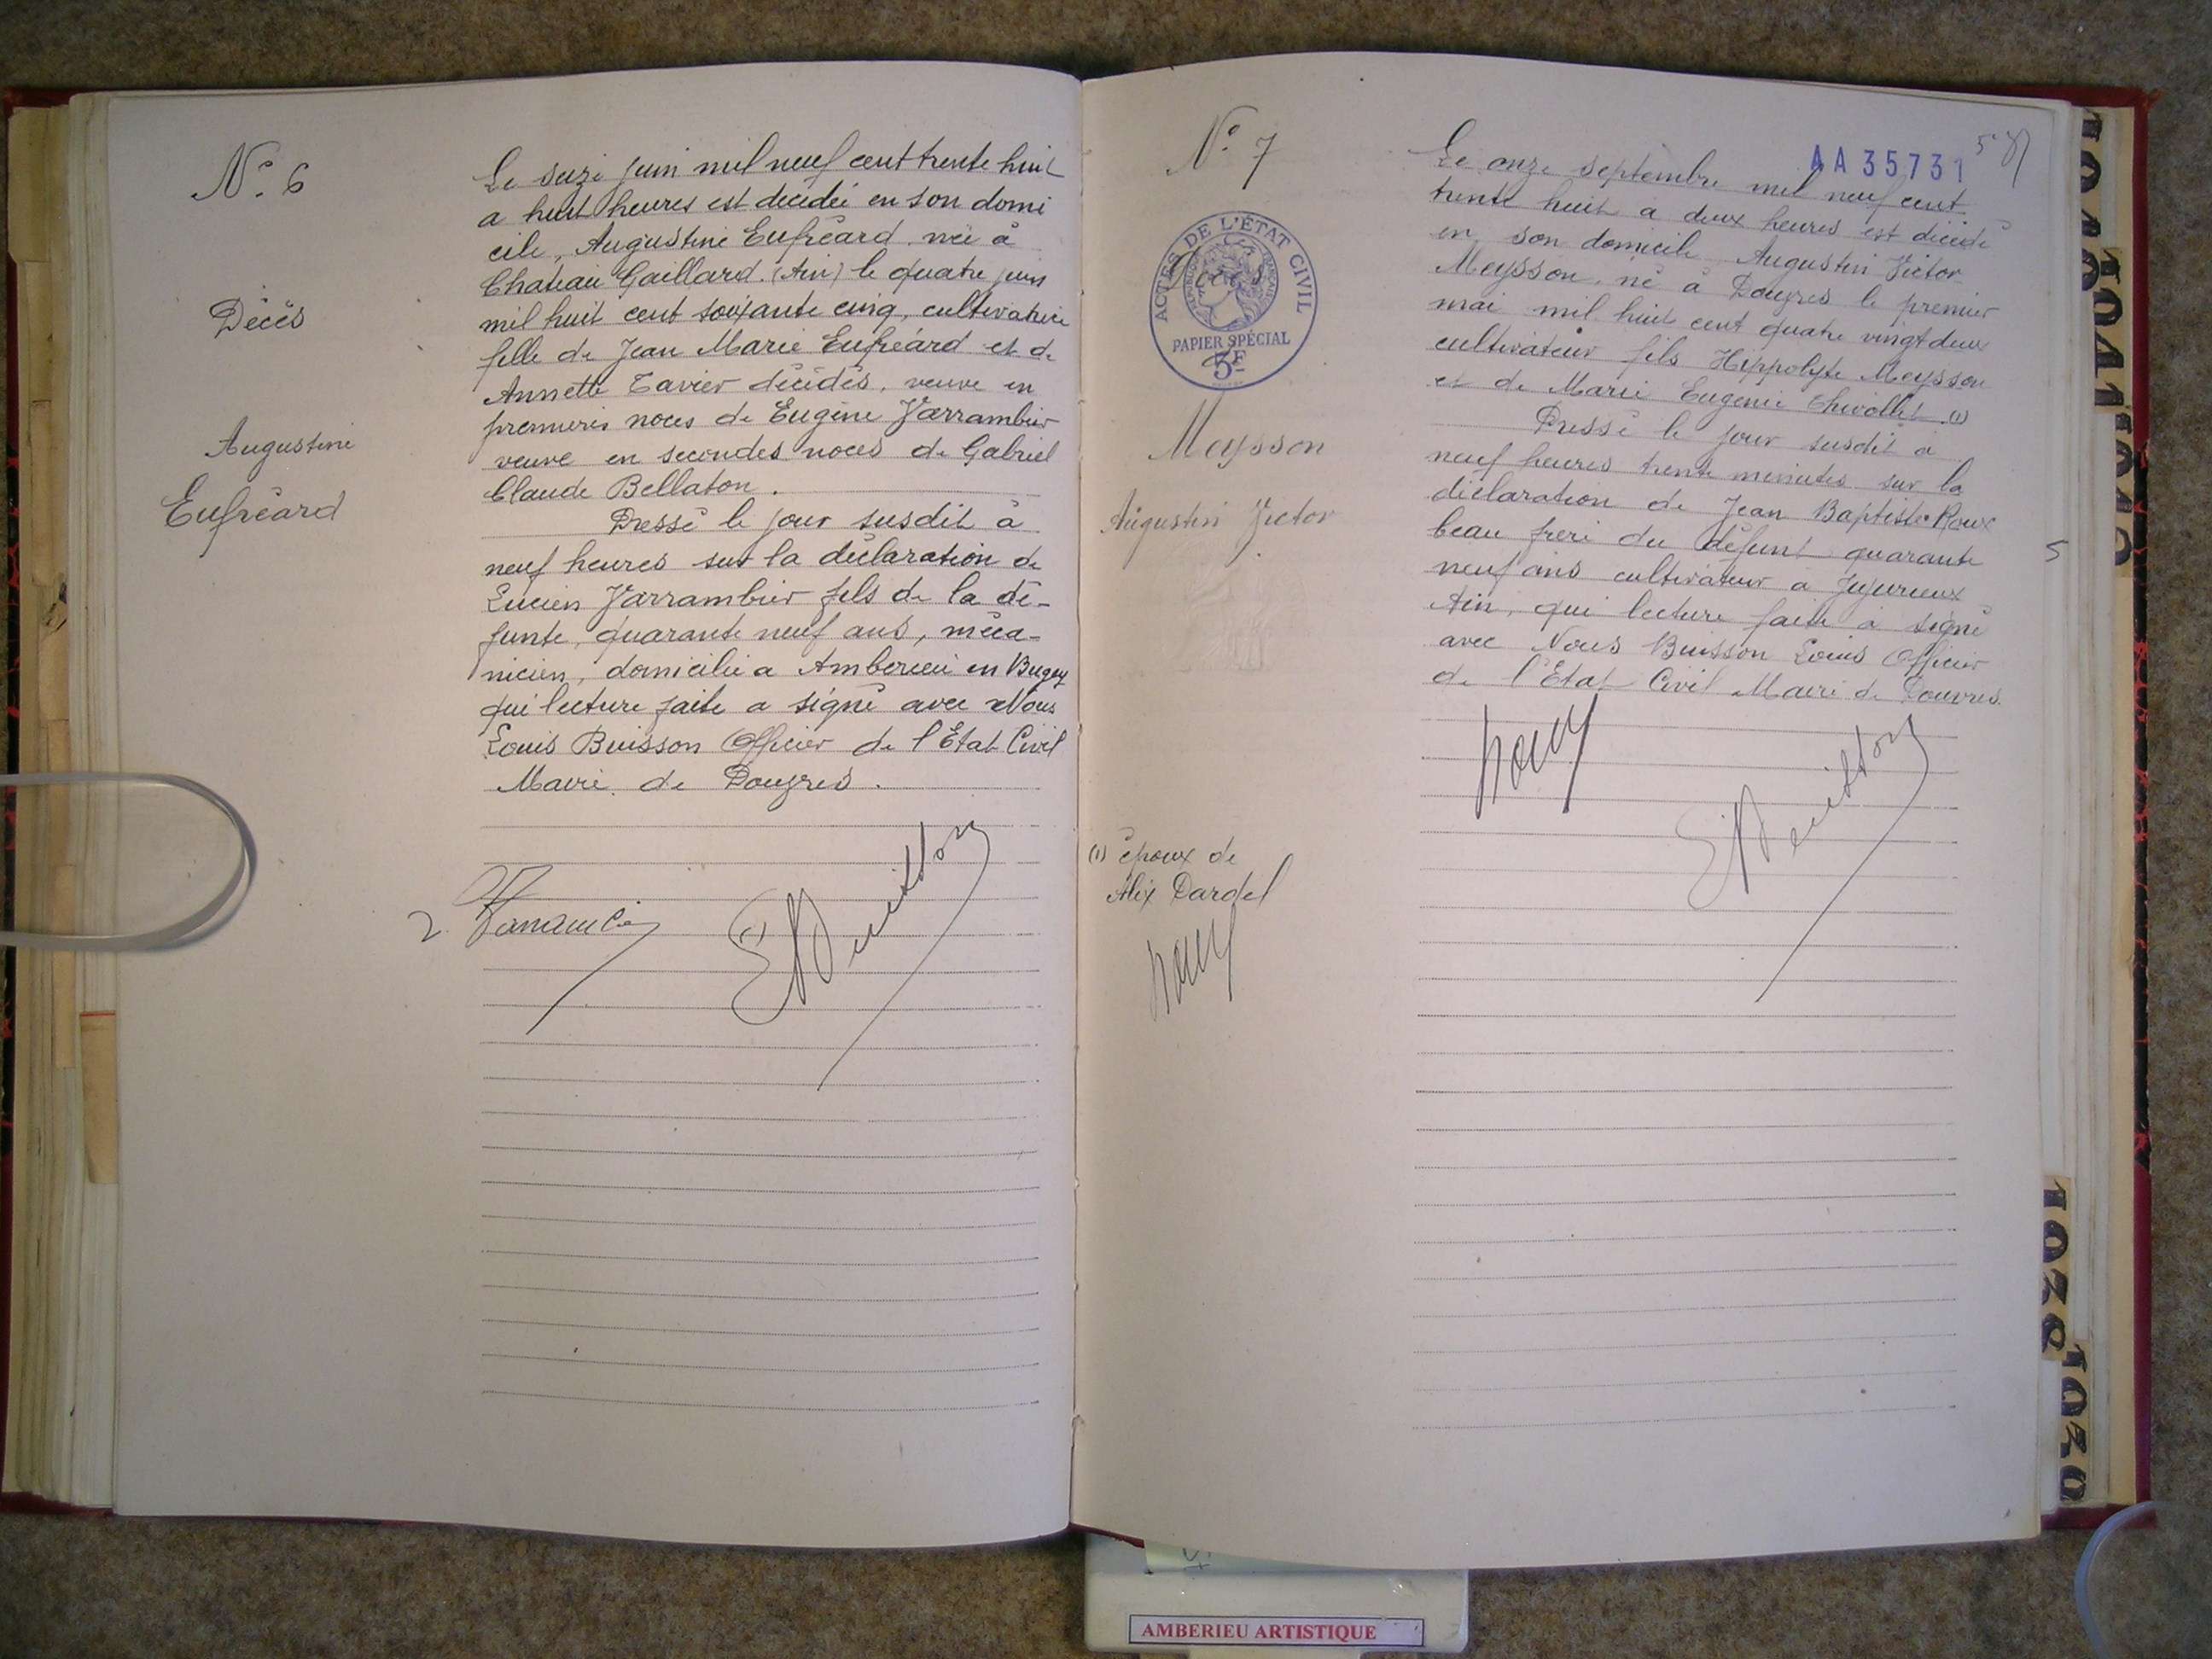 N° 6
Décès
Augustine
Eufréard
Le seize juin mil neuf cent trente huit
a huit heures est décédée en son domi
cile, Augustine Eufréard née à
Chateau Gaillard (Ain) le quatre juin
mil huit cent soixante cinq, cultivatrice
fille de Jean Marie Eufréard et de
Annette Tavier décédés, veuve en
premieres noces de Eugène Varrambier
veuve en secondes noces de Gabriel
Claude Bellaton.
Dressé le jour susdit à
neuf heures sur la déclaration de
Lucien Varrambier fils de la dé-
funte, quarante neuf ans, méca-
nicien, domicilié a Amberieu en Bugey
qui lecture faite a signé avec Nous
Louis Buisson Officier de l'Etat Civil
Maire de Douvres.
2
N° 7
ACTES DE L'ÉTAT CIVIL
PAPIER SPÉCIAL
3F
Meysson
Augustin Victor
(1) époux de
Alix Dardel
Roux
AA35731
Le onze septembre mil neuf cent
trente huit a deux heures est décédé
en son domicile Augustin Victor
Meysson, né à Douvres le premier
mai mil huit cent quatre vingt deux
cultivateur fils Hippolyte Meysson
et de Marie Eugenie Chevollet (1)
Dressé le jour susdit à
neuf heures trente minutes sur la
déclaration de Jean Baptiste Roux
beau frere du défunt quarante
neuf ans cultivateur a Jujurieux
Ain, qui lecture faite a signé
avec Nous Buisson Louis Officier
de l'Etat Civil Maire de Douvres.
Roux
Buisson
5
AMBERIEU ARTISTIQUE